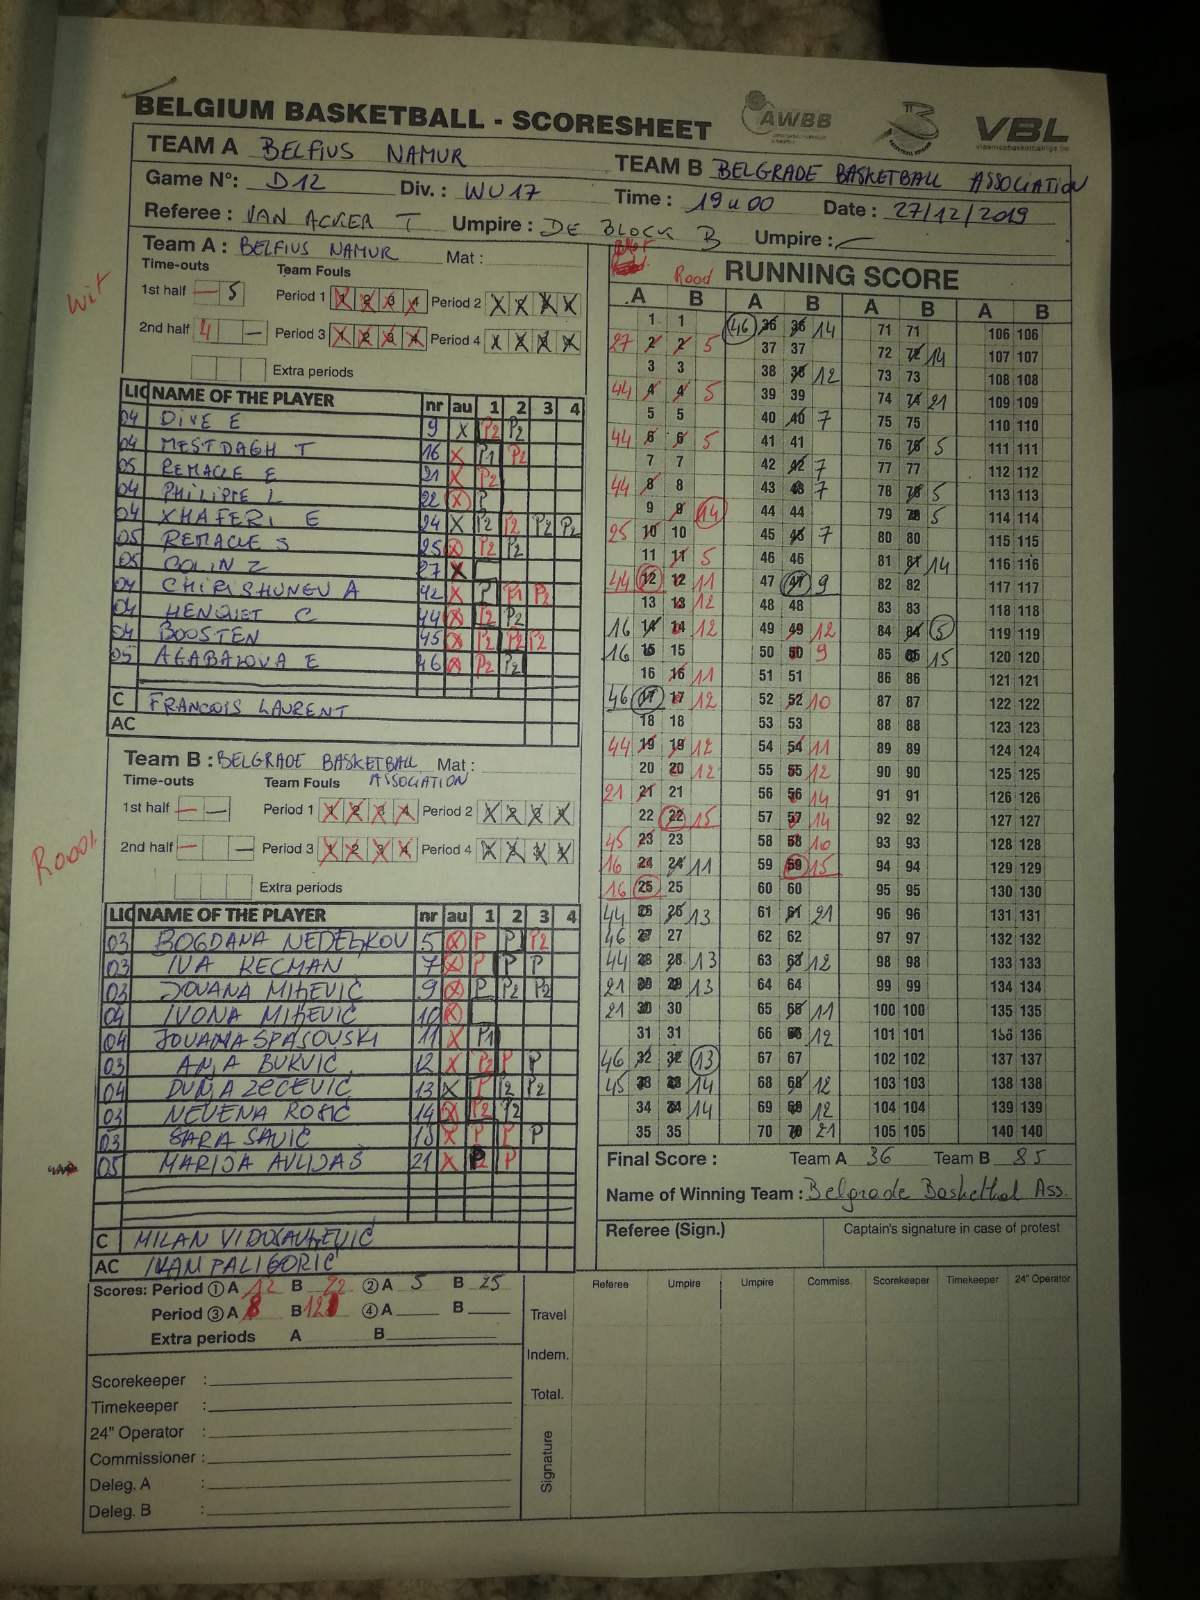 BELGIUM BASKETBALL - SCORESHEET
AWBB
VBL
TEAM A BELFIUS NAMUR
TEAM B BELGRADE BASKETBALL ASSOCIATION
Game N°: D12 Div.: WU17 Time: 19u00 Date: 27/12/2019
Referee: VAN ACKER T Umpire: DE BLOCK B Umpire:
Team A: BELFIUS NAMUR Mat:
Wit
Time-outs Team Fouls
1st half — 5 Period 1 1 2 3 4 Period 2 1 2 3 4
2nd half 4 — Period 3 1 2 3 4 Period 4 1 2 3 4
Extra periods
LIC NAME OF THE PLAYER nr au 1 2 3 4
04 DIVE E 9 X P2 P2
04 MESTDAGH T 16 X P1 P2
05 REMACLE E 21 X P2
04 PHILIPPE L 22 X P
04 XHAFERI E 24 X P2 P2 P2 P2
05 REMACLE S 25 X P2 P2
05 COLIN Z 27 X
04 CHIRISHUNGU A 42 X P P1 P2
04 HENQUET C 44 X P2 P2
04 BOOSTEN 45 X P2 P2 P2
05 AGABALOVA E 46 X P2 P2
C FRANCOIS LAURENT
AC
Team B: BELGRADE BASKETBALL ASSOCIATION Mat:
Rood
Time-outs Team Fouls
1st half — — Period 1 1 2 3 4 Period 2 1 2 3 4
2nd half — — Period 3 1 2 3 4 Period 4 1 2 3 4
Extra periods
LIC NAME OF THE PLAYER nr au 1 2 3 4
03 BOGDANA NEDELJKOV 5 X P P P2
03 IVA KECMAN 7 X P P P
03 JOVANA MIHEVIĆ 9 X P P2 P2
04 IVONA MIHEVIĆ 10 X
04 JOVANA SPASOVSKI 11 X P1
03 ANJA BUKVIĆ 12 X P2 P P
04 DUNJA ZECEVIĆ 13 X P P2 P2
03 NEVENA ROSIĆ 14 X P2 P2
03 SARA SAVIĆ 15 X P P P
05 MARIJA AVLIJAŠ 21 X P
C MILAN VIDOSAVLJEVIĆ
AC IVAN PALIGORIĆ
Scores: Period ① A 12 B 22 ② A 5 B 25
Period ③ A 8 B 12 ④ A B
Extra periods A B
Scorekeeper :
Timekeeper :
24" Operator :
Commissioner :
Deleg. A :
Deleg. B :
Rood RUNNING SCORE
A B A B A B A B
1 1 46 36 36 14 71 71 106 106
27 2 2 5 37 37 72 72 14 107 107
3 3 38 38 12 73 73 108 108
44 4 4 5 39 39 74 74 21 109 109
5 5 40 40 7 75 75 110 110
44 6 6 5 41 41 76 76 5 111 111
7 7 42 42 7 77 77 112 112
44 8 8 43 43 7 78 78 5 113 113
9 9 14 44 44 79 79 5 114 114
25 10 10 45 45 7 80 80 115 115
11 11 5 46 46 81 81 14 116 116
44 12 12 11 47 47 9 82 82 117 117
13 13 12 48 48 83 83 118 118
16 14 14 12 49 49 12 84 84 5 119 119
16 15 15 50 50 9 85 85 15 120 120
16 16 11 51 51 86 86 121 121
46 17 17 12 52 52 10 87 87 122 122
18 18 53 53 88 88 123 123
44 19 19 12 54 54 11 89 89 124 124
20 20 12 55 55 12 90 90 125 125
21 21 21 56 56 14 91 91 126 126
22 22 15 57 57 14 92 92 127 127
45 23 23 58 58 10 93 93 128 128
16 24 24 11 59 59 15 94 94 129 129
16 25 25 60 60 95 95 130 130
44 26 26 13 61 61 21 96 96 131 131
46 27 27 62 62 97 97 132 132
44 28 28 13 63 63 12 98 98 133 133
21 29 29 13 64 64 99 99 134 134
21 30 30 65 65 11 100 100 135 135
31 31 66 66 12 101 101 136 136
46 32 32 13 67 67 102 102 137 137
45 33 33 14 68 68 12 103 103 138 138
34 34 14 69 69 12 104 104 139 139
35 35 70 70 21 105 105 140 140
Final Score: Team A 36 Team B 85
Name of Winning Team: Belgrade Basketbal Ass.
Referee (Sign.) Captain's signature in case of protest
Referee Umpire Umpire Commiss. Scorekeeper Timekeeper 24" Operator
Travel
Indem.
Total.
Signature